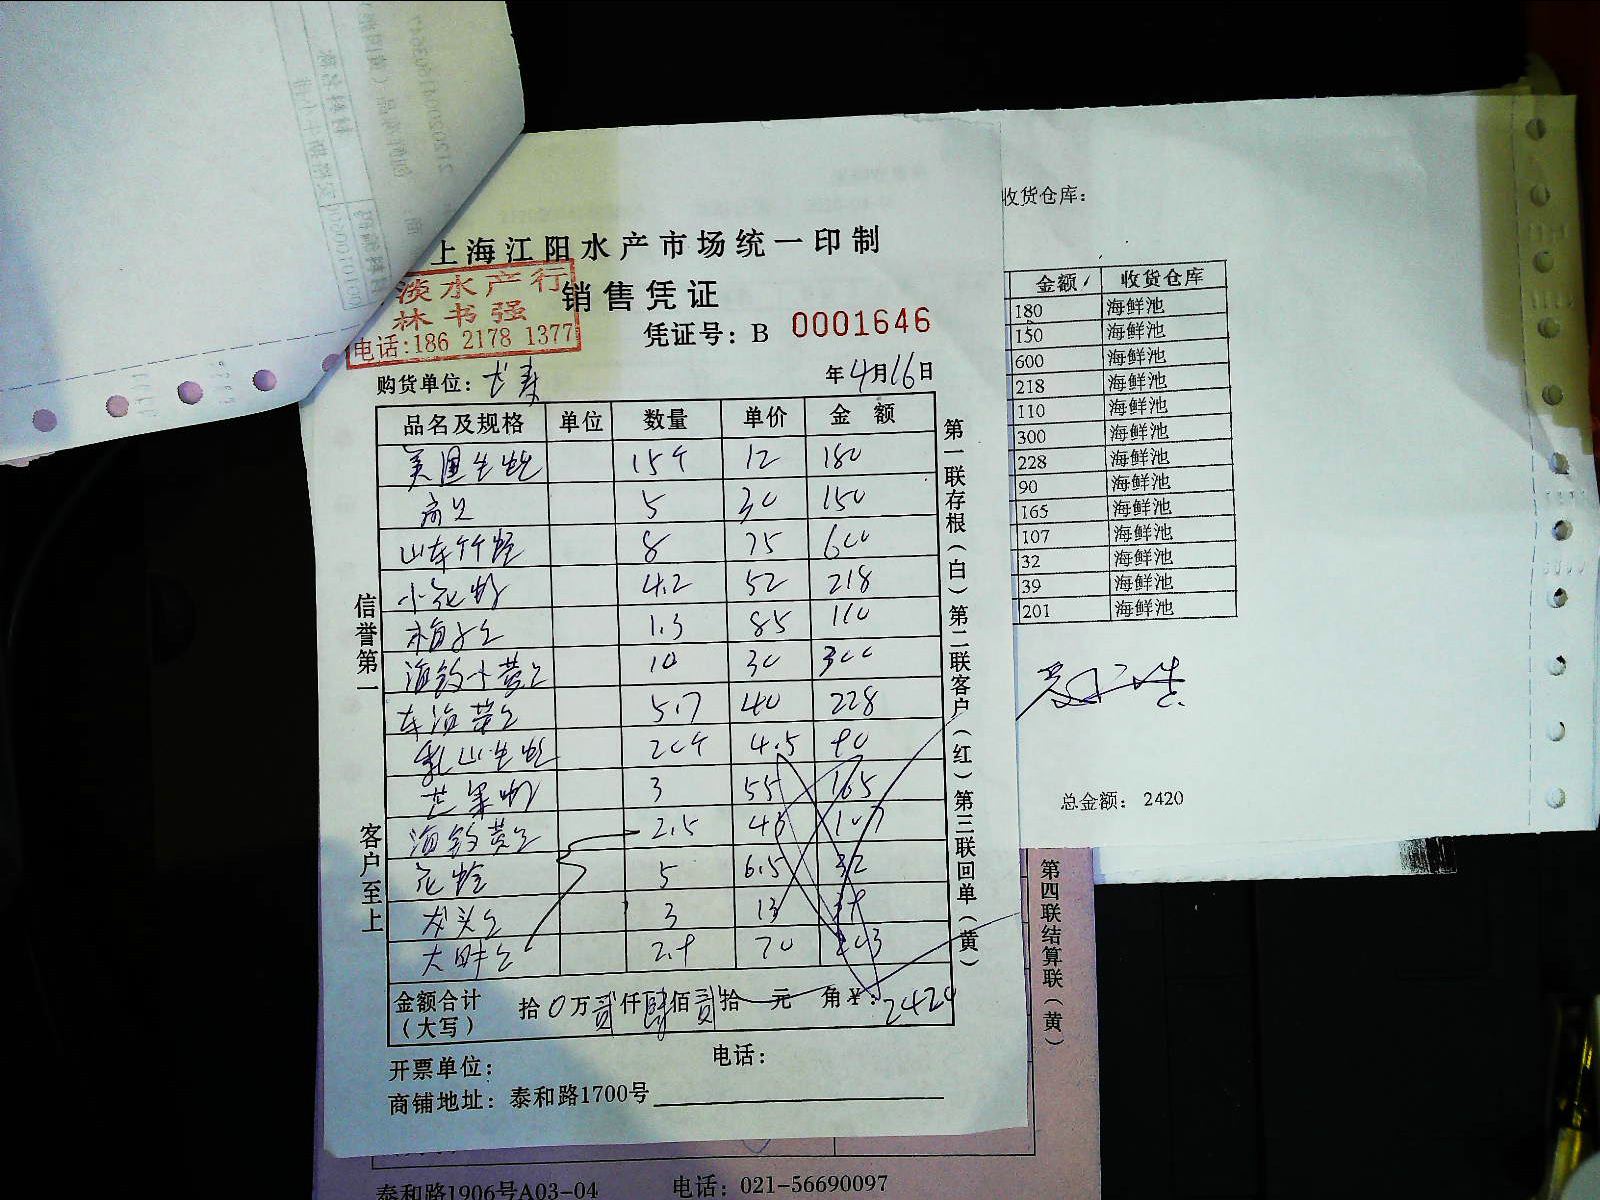 上海江阳水产市场统一印制
淡水产行
林书强
电话:186 2178 1377
销售凭证
凭证号: B 0001646
购货单位:
年4月16日
品名及规格 单位 数量 单价 金额
美国生蚝 15个 12 180
扇贝 5 30 150
山东竹蛏 8 75 600
小花虾 4.2 52 218
梅子仝 1.3 85 110
海钓小黄仝 10 30 300
东海黄仝 5.7 40 228
乳山生蚝 20个 4.5 90
芒果虾 3 55 165
海钓黄仝 2.5 43 107
花蛤 5 6.5 32
龙头仝 3 13 39
大明仝 2.9 70 203
金额合计
(大写)
拾0万贰仟肆佰贰拾 元 角¥: 2424
开票单位:
电话:
商铺地址: 泰和路1700号
信誉第一
客户至上
第一联存根(白)第二联客户(红)第三联回单(黄)
收货仓库:
金额 收货仓库
180 海鲜池
150 海鲜池
600 海鲜池
218 海鲜池
110 海鲜池
300 海鲜池
228 海鲜池
90 海鲜池
165 海鲜池
107 海鲜池
32 海鲜池
39 海鲜池
201 海鲜池
总金额: 2420
第四联结算联(黄)
泰和路1906号A03-04
电话: 021-56690097